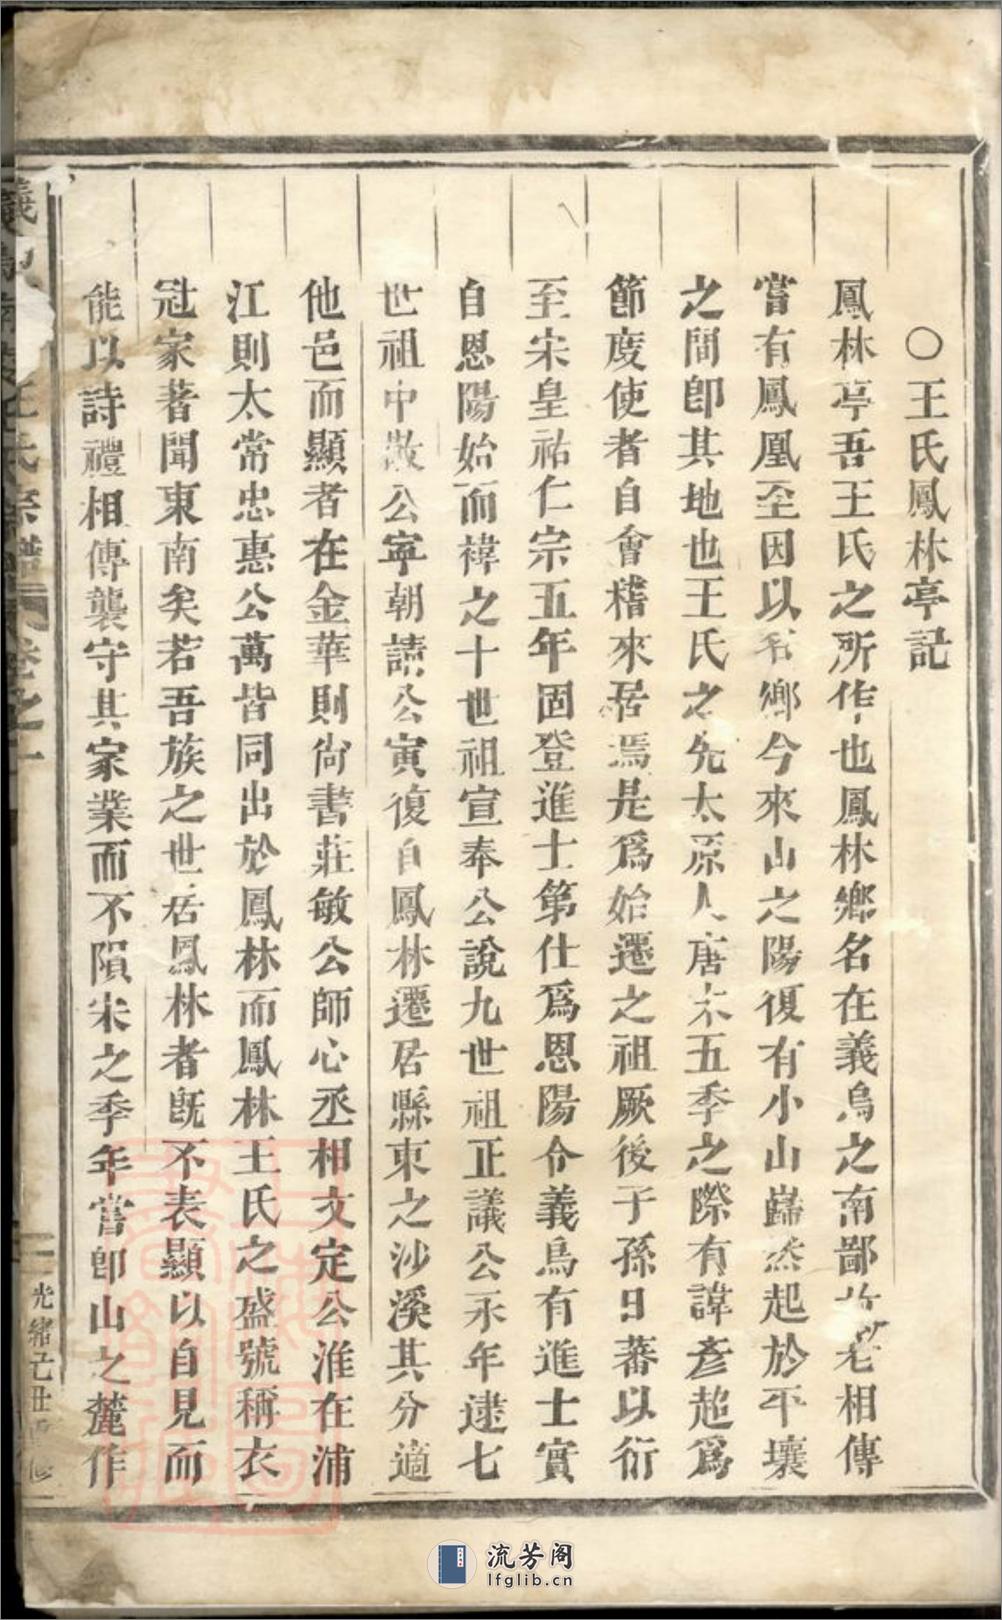 ○王氏鳳林亭記
鳳林亭吾王氏之所作也鳳林鄉名在義烏之南鄙故老相傳
嘗有鳳凰至因以名鄉今來山之陽復有小山巋然起於平壤
之間即其地也王氏之先太原人唐末五季之際有諱彥超爲
節度使者自會稽來居焉是爲始遷之祖厥後子孫日蕃以衍
至宋皇祐仁宗五年固登進士第仕爲恩陽令義烏有進士實
自恩陽始而褘之十世祖宣奉公說九世祖正議公永年逮七
世祖中散公寧朝請公寅復自鳳林遷居縣東之沙溪其分適
他邑而顯者在金華則尚書莊敏公師心丞相文定公淮在浦
江則太常忠惠公萬皆同出於鳳林而鳳林王氏之盛號稱衣
冠家著聞東南矣若吾族之世居鳳林者既不表顯以自見而
能以詩禮相傳襲守其家業而不隕宋之季年嘗即山之麓作
義烏 王氏宗譜 卷之一
光緒己丑 修
流芳阁
lfglib.cn